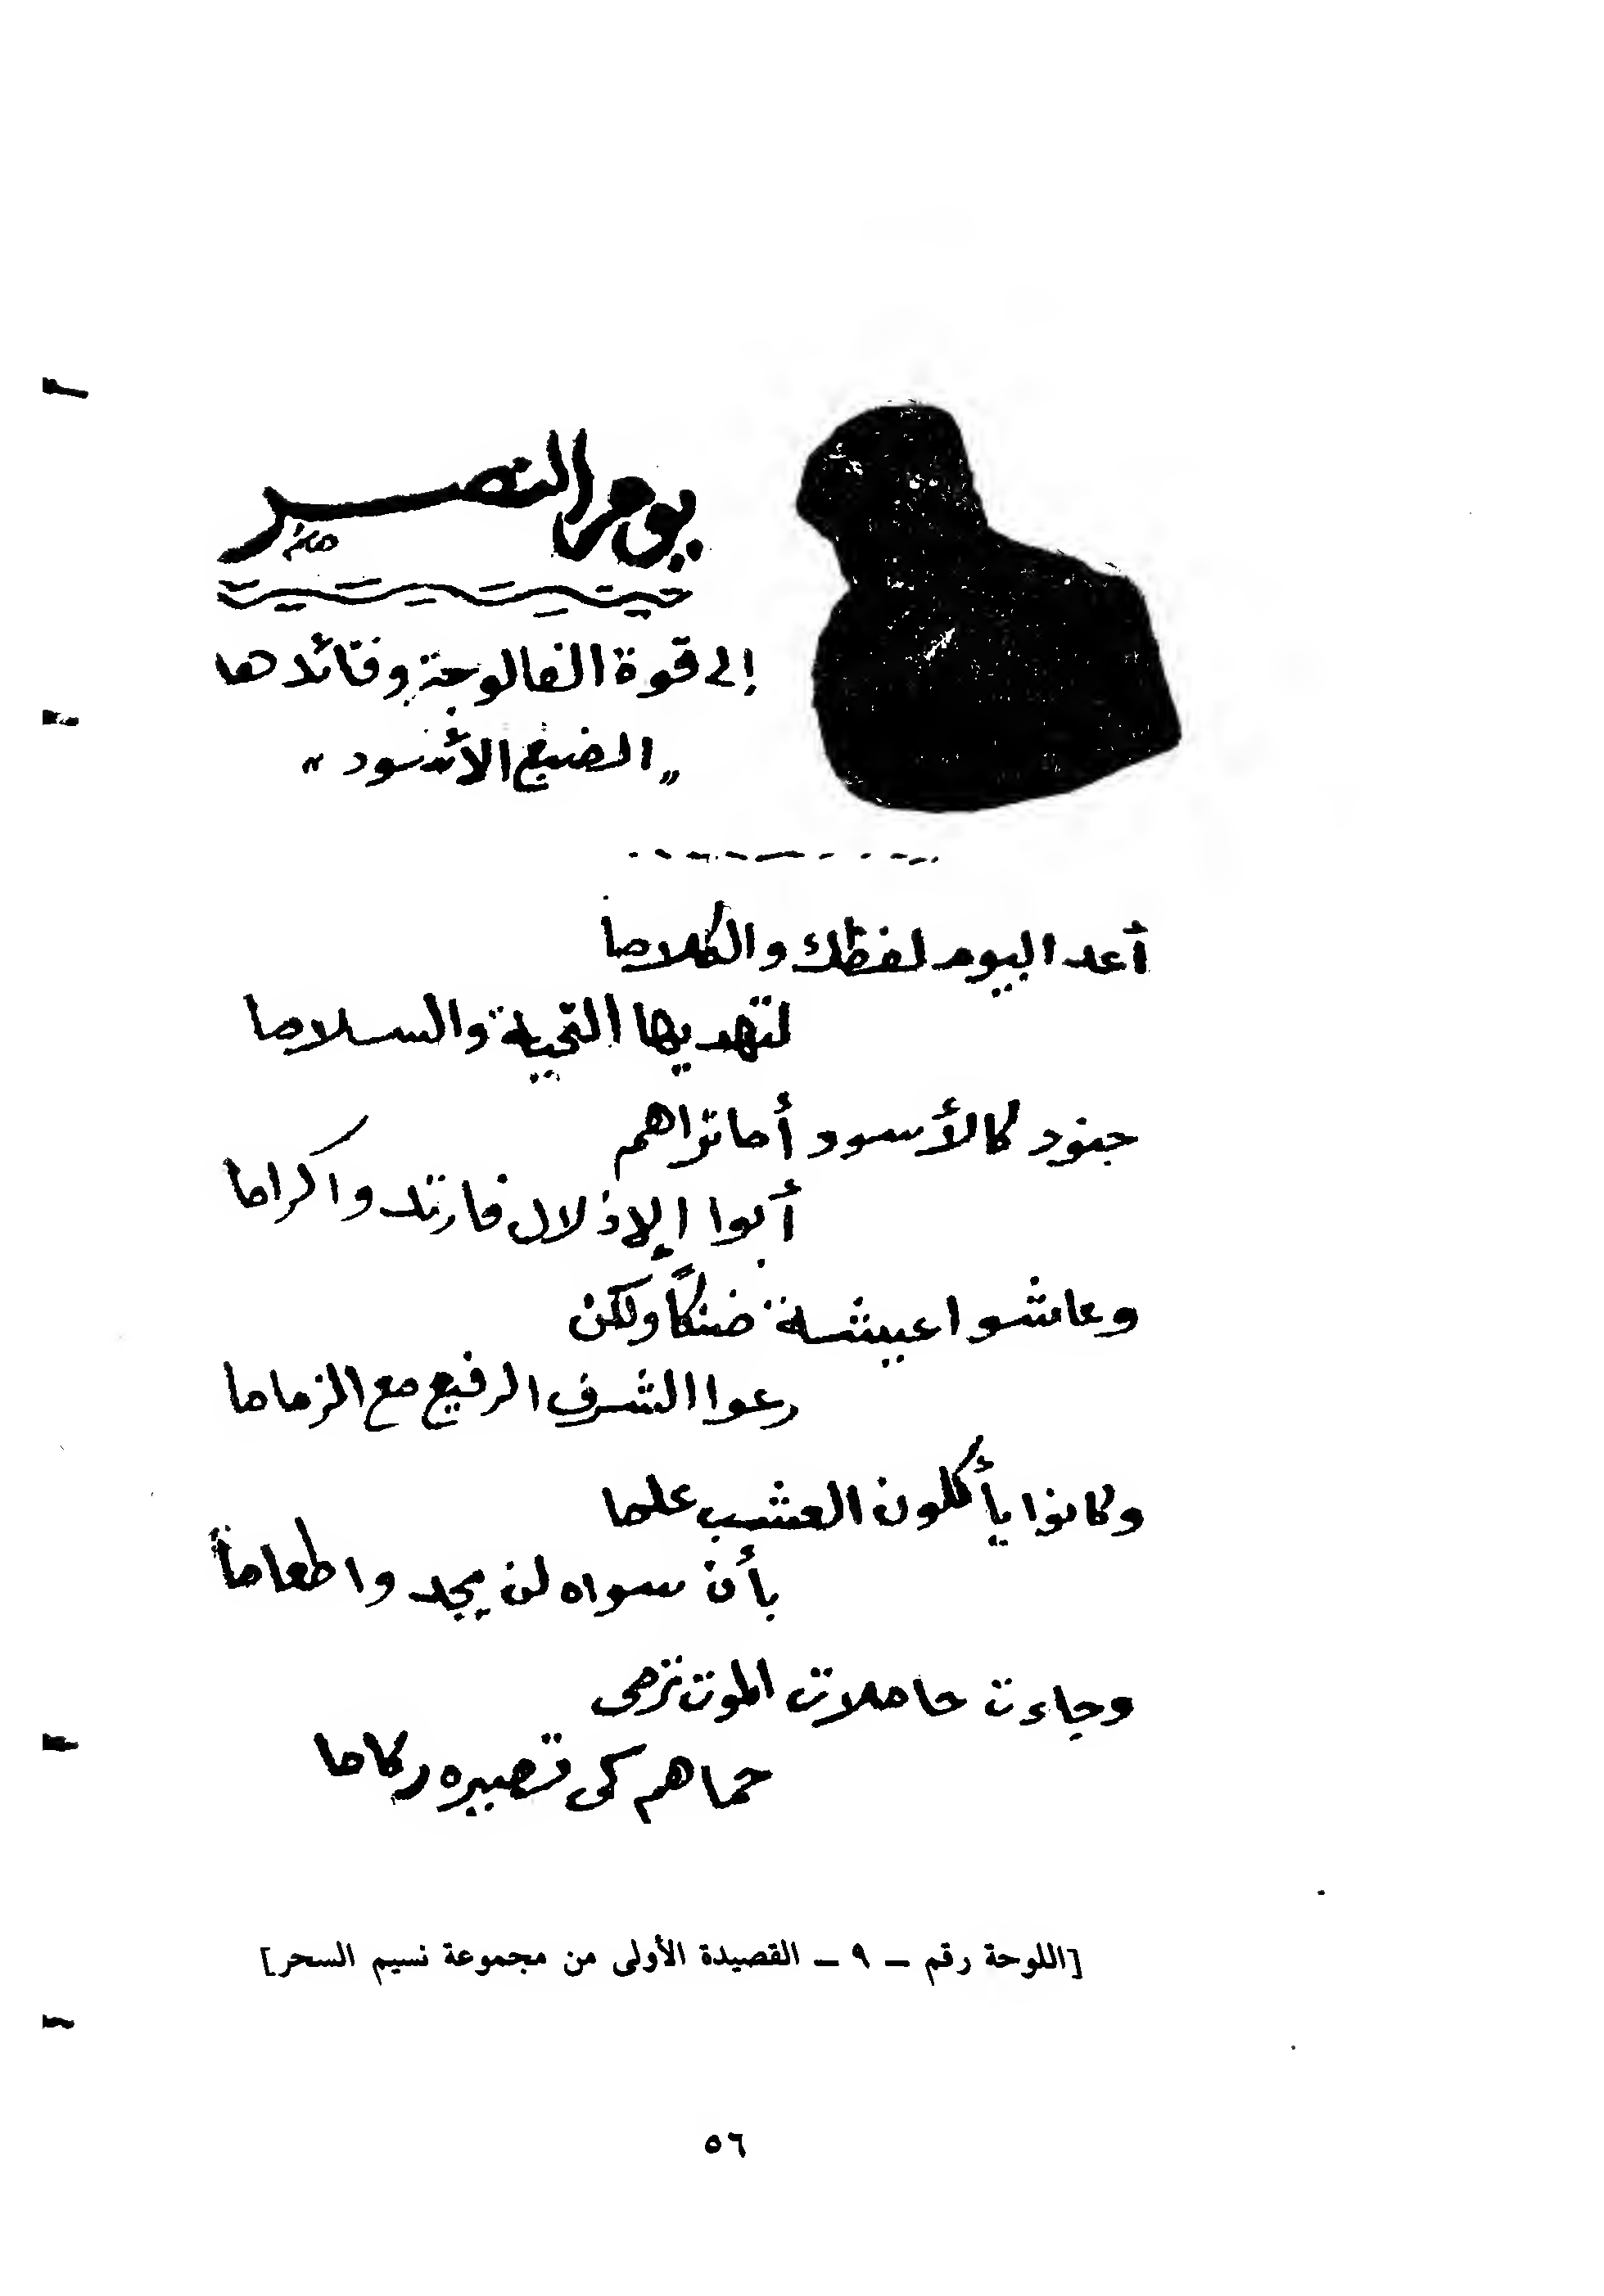 يوم النصر
إلى قوة الفالوجة وقائدها
„الضبع الأسود"
أعد اليوم لفظك والكلاما
لتهديها التحية والسلاما
جنود كالأسود أما تراهم
أبوا الإذلال فارتدوا كراما
وعاشوا عيشة ضنكاً ولكن
رعوا الشرف الرفيع مع الزماما
وكانوا يأكلون العشب علما
بأن سواه لن يجدوا طعاماً
وجاءت حاملات الموت ترمى
حماهم كى تصيره ركاما
[اللوحة رقم – ٩ – القصيدة الأولى من مجموعة نسيم السحر]
٥٦